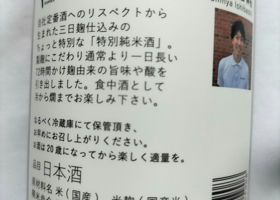 自社定番酒へのリスペクトから
生まれた三日麹仕込みの
ちょっと特別な「特別純米酒」。
製麹にこだわり通常より一日長い
72時間かけ麹由来の旨味や酸を
引き出しました。食中酒として
冷から燗までお楽しみ下さい。
なるべく冷蔵庫にて保管頂き、
お早めにお召し上がりください。
お酒は20歳になってから楽しく適量を。
品目 日本酒
原材料名 米(国産)、米麹(国産米)